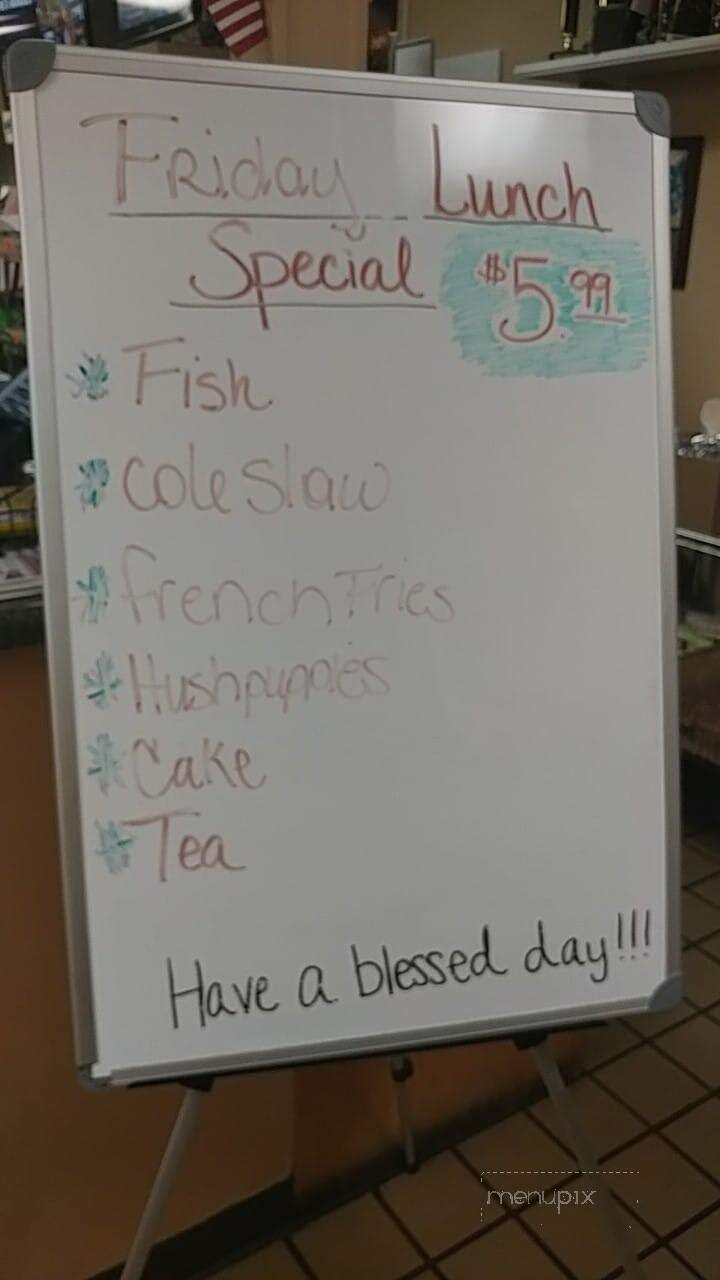 Friday Lunch
Special $5.99
* Fish
* Cole Slaw
* French Fries
* Hushpuppies
* Cake
* Tea
Have a blessed day!!!
menupix